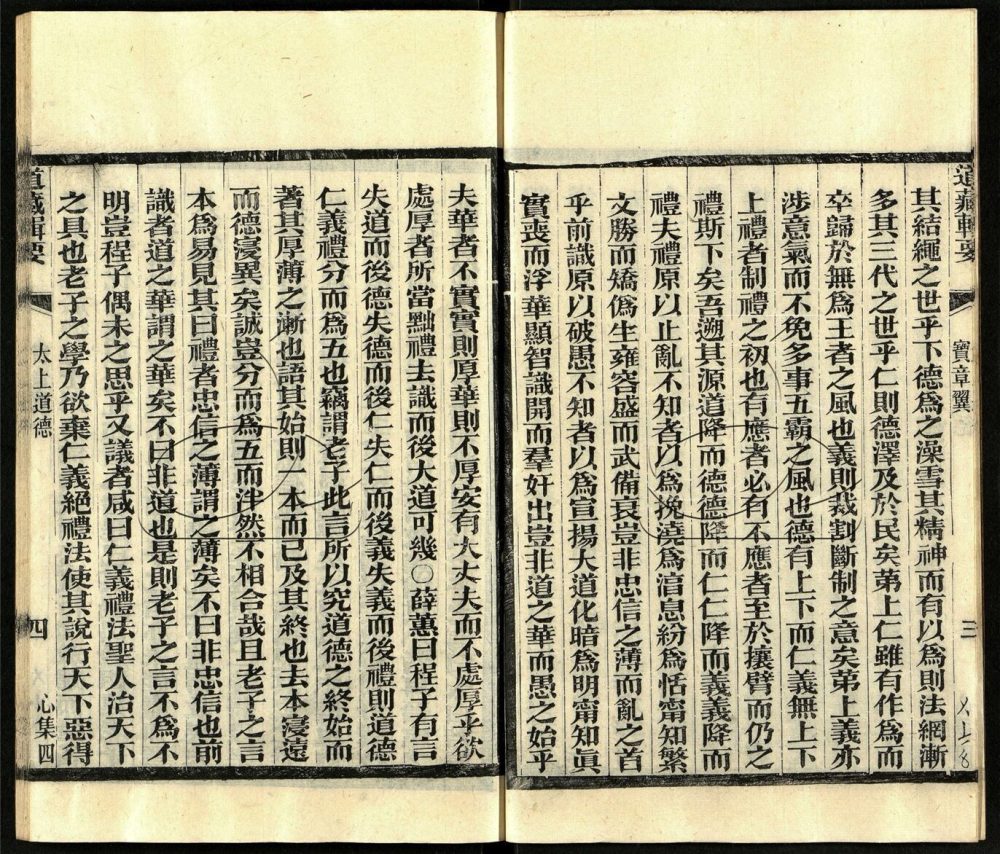 道藏輯要
寶章翼
三
其結繩之世乎下德爲之澡雪其精神而有以爲則法網漸
多其三代之世乎仁則德澤及於民矣第上仁雖有作爲而
卒歸於無爲王者之風也義則裁割斷制之意矣第上義亦
涉意氣而不免多事五霸之風也德有上下而仁義無上下
上禮者制禮之初也有應者必有不應者至於攘臂而仍之
禮斯下矣吾遡其源道降而德德降而仁仁降而義義降而
禮夫禮原以止亂不知者以爲挽澆爲湻息紛爲恬甯知繁
文勝而矯僞生雍容盛而武備衰豈非忠信之薄而亂之首
乎前識原以破愚不知者以爲宣揚大道化暗爲明甯知眞
實喪而浮華顯智識開而羣奸出豈非道之華而愚之始乎
夫華者不實實則厚華則不厚安有大丈夫而不處厚乎欲
處厚者所當黜禮去識而後大道可幾○薛蕙曰程子有言
失道而後德失德而後仁失仁而後義失義而後禮則道德
仁義禮分而爲五也竊謂老子此言所以究道德之終始而
著其厚薄之漸也語其始則一本而已及其終也去本寖遠
而德寖異矣誠豈分而爲五而泮然不相合哉且老子之言
本爲易見其曰禮者忠信之薄謂之薄矣不曰非忠信也前
識者道之華謂之華矣不曰非道也是則老子之言不爲不
明豈程子偶未之思乎又議者咸曰仁義禮法聖人治天下
之具也老子之學乃欲棄仁義絕禮法使其說行天下惡得
道藏輯要
太上道德
四
心集四